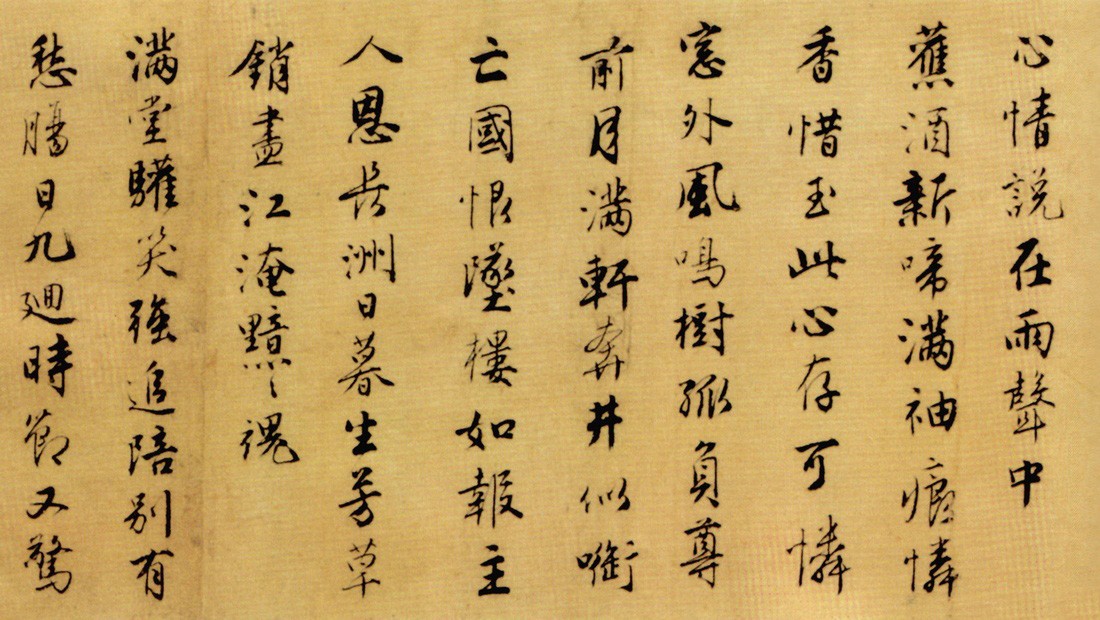 心情説在雨聲中
蕉酒新啼滿袖痕憐
香惜玉此心存可憐
窓外風鳴樹孤負尊
前月滿軒奔井似啣
亡國恨墜樓如報主
人恩長洲日暮生芳草
銷盡江淹黯〻魂
滿堂驩笑強追陪別有
愁腸日九廻時節又驚